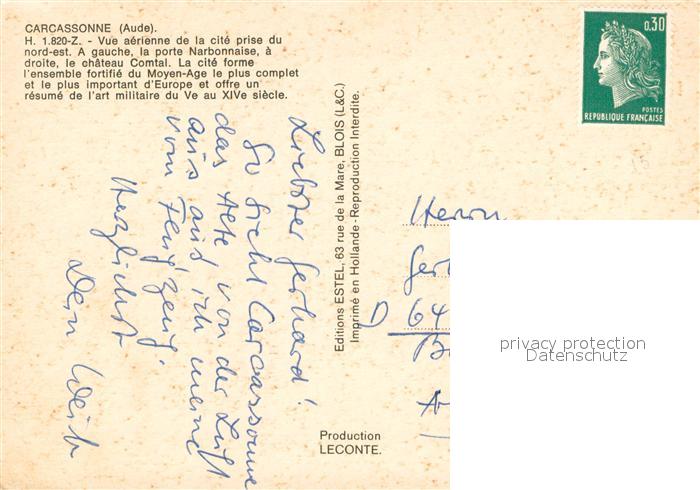 CARCASSONNE (Aude).
H. 1.820-Z. - Vue aérienne de la cité prise du
nord-est. A gauche, la porte Narbonnaise, à
droite, le château Comtal. La cité forme
l'ensemble fortifié du Moyen-Age le plus complet
et le plus important d'Europe et offre un
résumé de l'art militaire du Ve au XIVe siècle.
Liebster Gerhard!
So sieht Carcassonne
das alte von der Luft
aus aus, ich meine
vom Flugzeug.
Herzlichst
Dein
Editions ESTEL, 63 rue de la Mare, BLOIS (L&C.)
Imprimé en Hollande - Reproduction Interdite.
Production
LECONTE.
0,30
POSTES
REPUBLIQUE FRANÇAISE
Herrn
Ger
D 64
privacy protection
Datenschutz